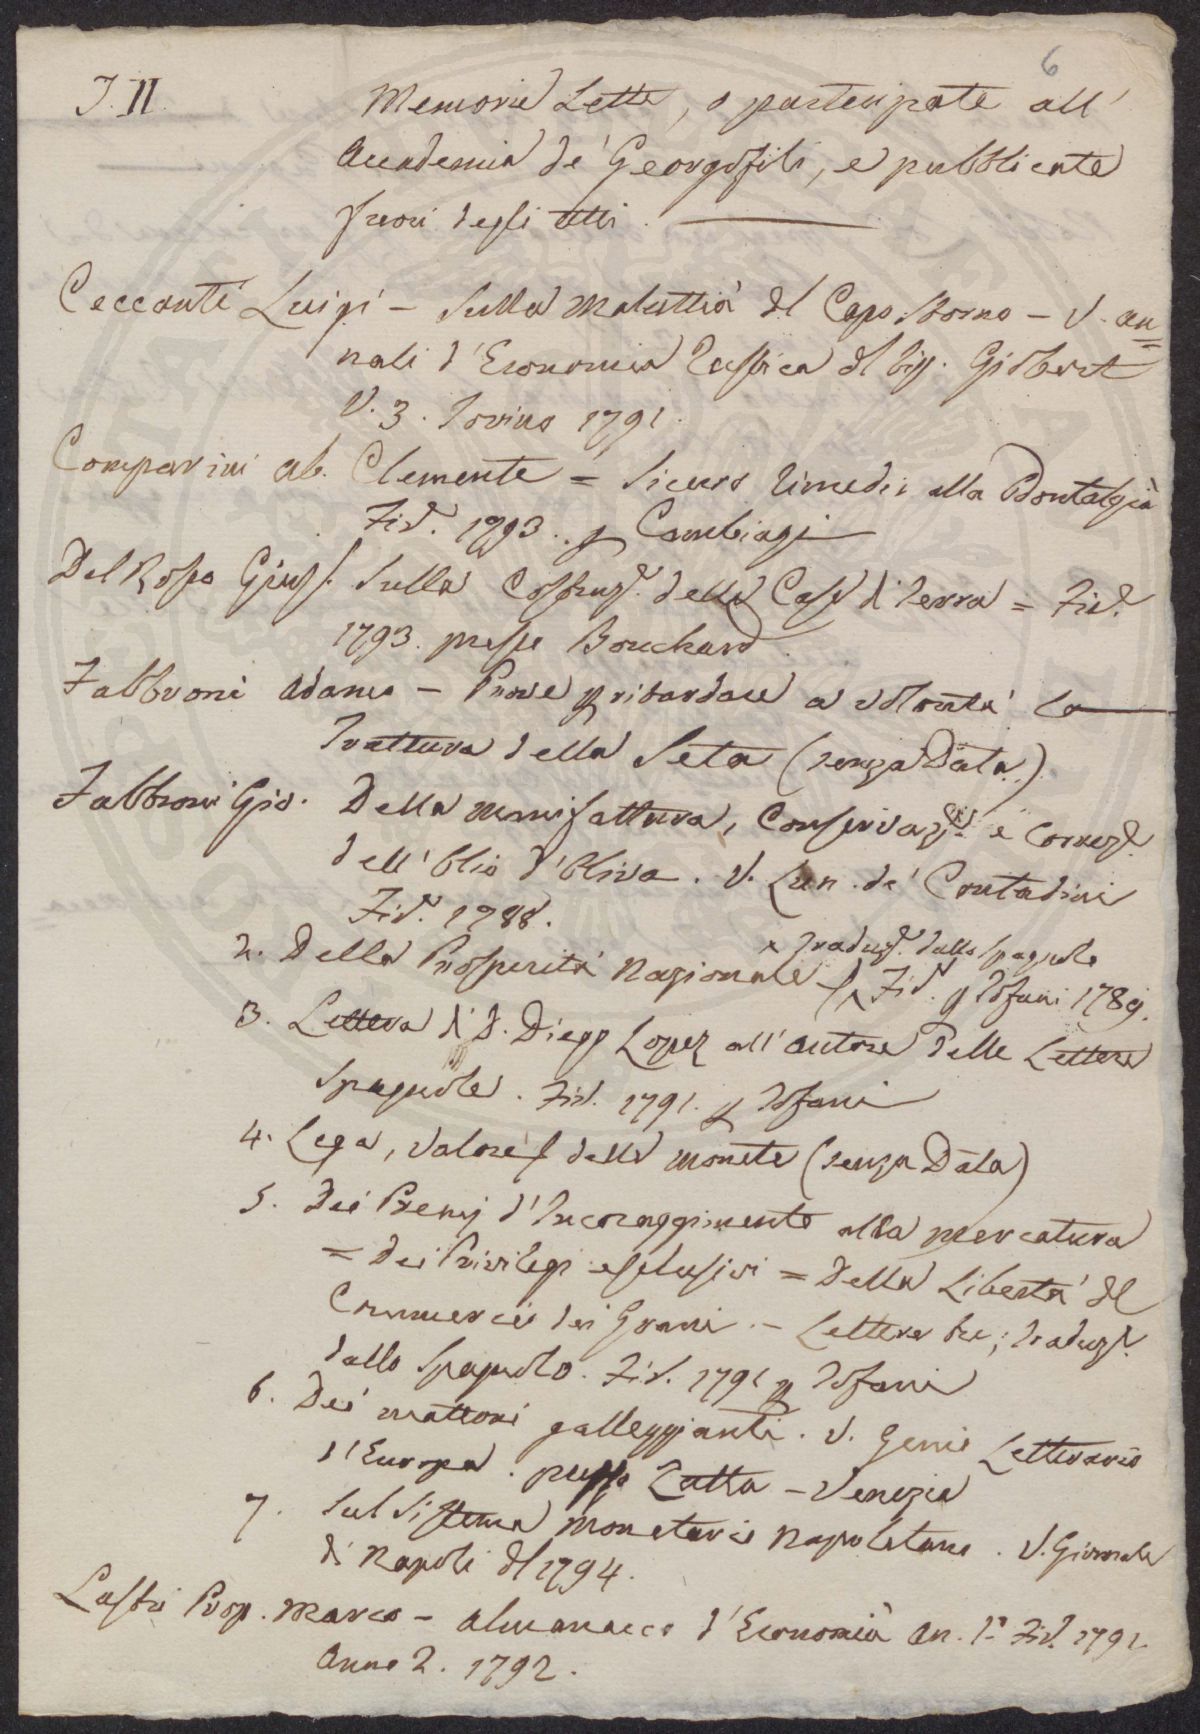 6
T. II. Memorie Lette, o partecipate all'
Accademia de' Georgofili, e pubblicate
fuori degli atti.
Ceccanti Luigi - Sulla Malattia del Capo Storno - V. An=
nali d'Economia Rustica del Sig. Gioberst
V. 3. Torino 1791.
Comparini ab. Clemente = Sicuro rimedio alla Odontalgia
Fir. 1793. p Cambiagi
Del Rosso Gius. Sulla Costruz.e delle Case di Terra = Fir.e
1793. presso Bouchard.
Fabbroni Adamo - Prove p ritardare a volontà la
Trattura della Seta (senza Data)
Fabbroni Gio. Della manifattura, Conservaz.e e Correz.e
dell'Olio d'Oliva. V. Lun. de' Contadini
Fir.e 1788.
2. Della Prosperità Nazionale
Traduz.e dallo spagnolo
Fir. p Tofani 1789.
3. Lettera di D. Diego Lopez all'autore delle Lettere
Spagnole. Fir. 1791. p Tofani
4. Lega, Valore delle Monete (senza Data)
5. Dei Premj d'Incoraggimento alla Mercatura
= Dei Privilegi esclusivi = Della Libertà del
Commercio dei Grani. - Lettere tre; traduz.e
dallo Spagnolo. Fir. 1791 p Tofani
6. Dei mattoni galleggianti. V. Genio Letterario
d'Europa. presso Zatta - Venezia
7. Sul Sistema Monetario Napoletano. V. Giornale
di Napoli del 1794.
Lastri Prop. Marco - Almanacco d'Economia An. 1.º Fir.e 1791.
Anno 2. 1792.